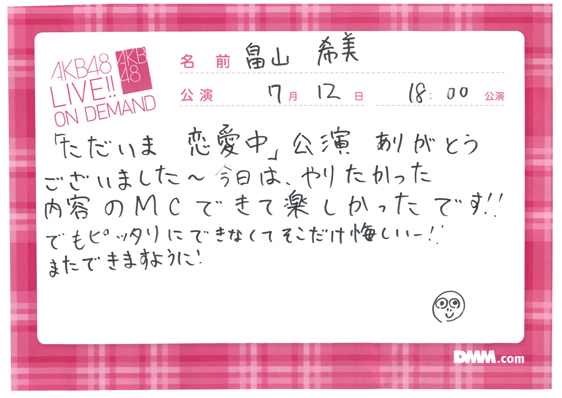 AKB48
LIVE!!
ON DEMAND
AKB
48
名前 畠山 希美
公演 7月 12日 18:00 公演
「ただいま 恋愛中」公演 ありがとう
ございました〜 今日は、やりたかった
内容のMCできて楽しかったです!!
でもピッタリにできなくてそこだけ悔しいー!!
またできますように!
DMM.com